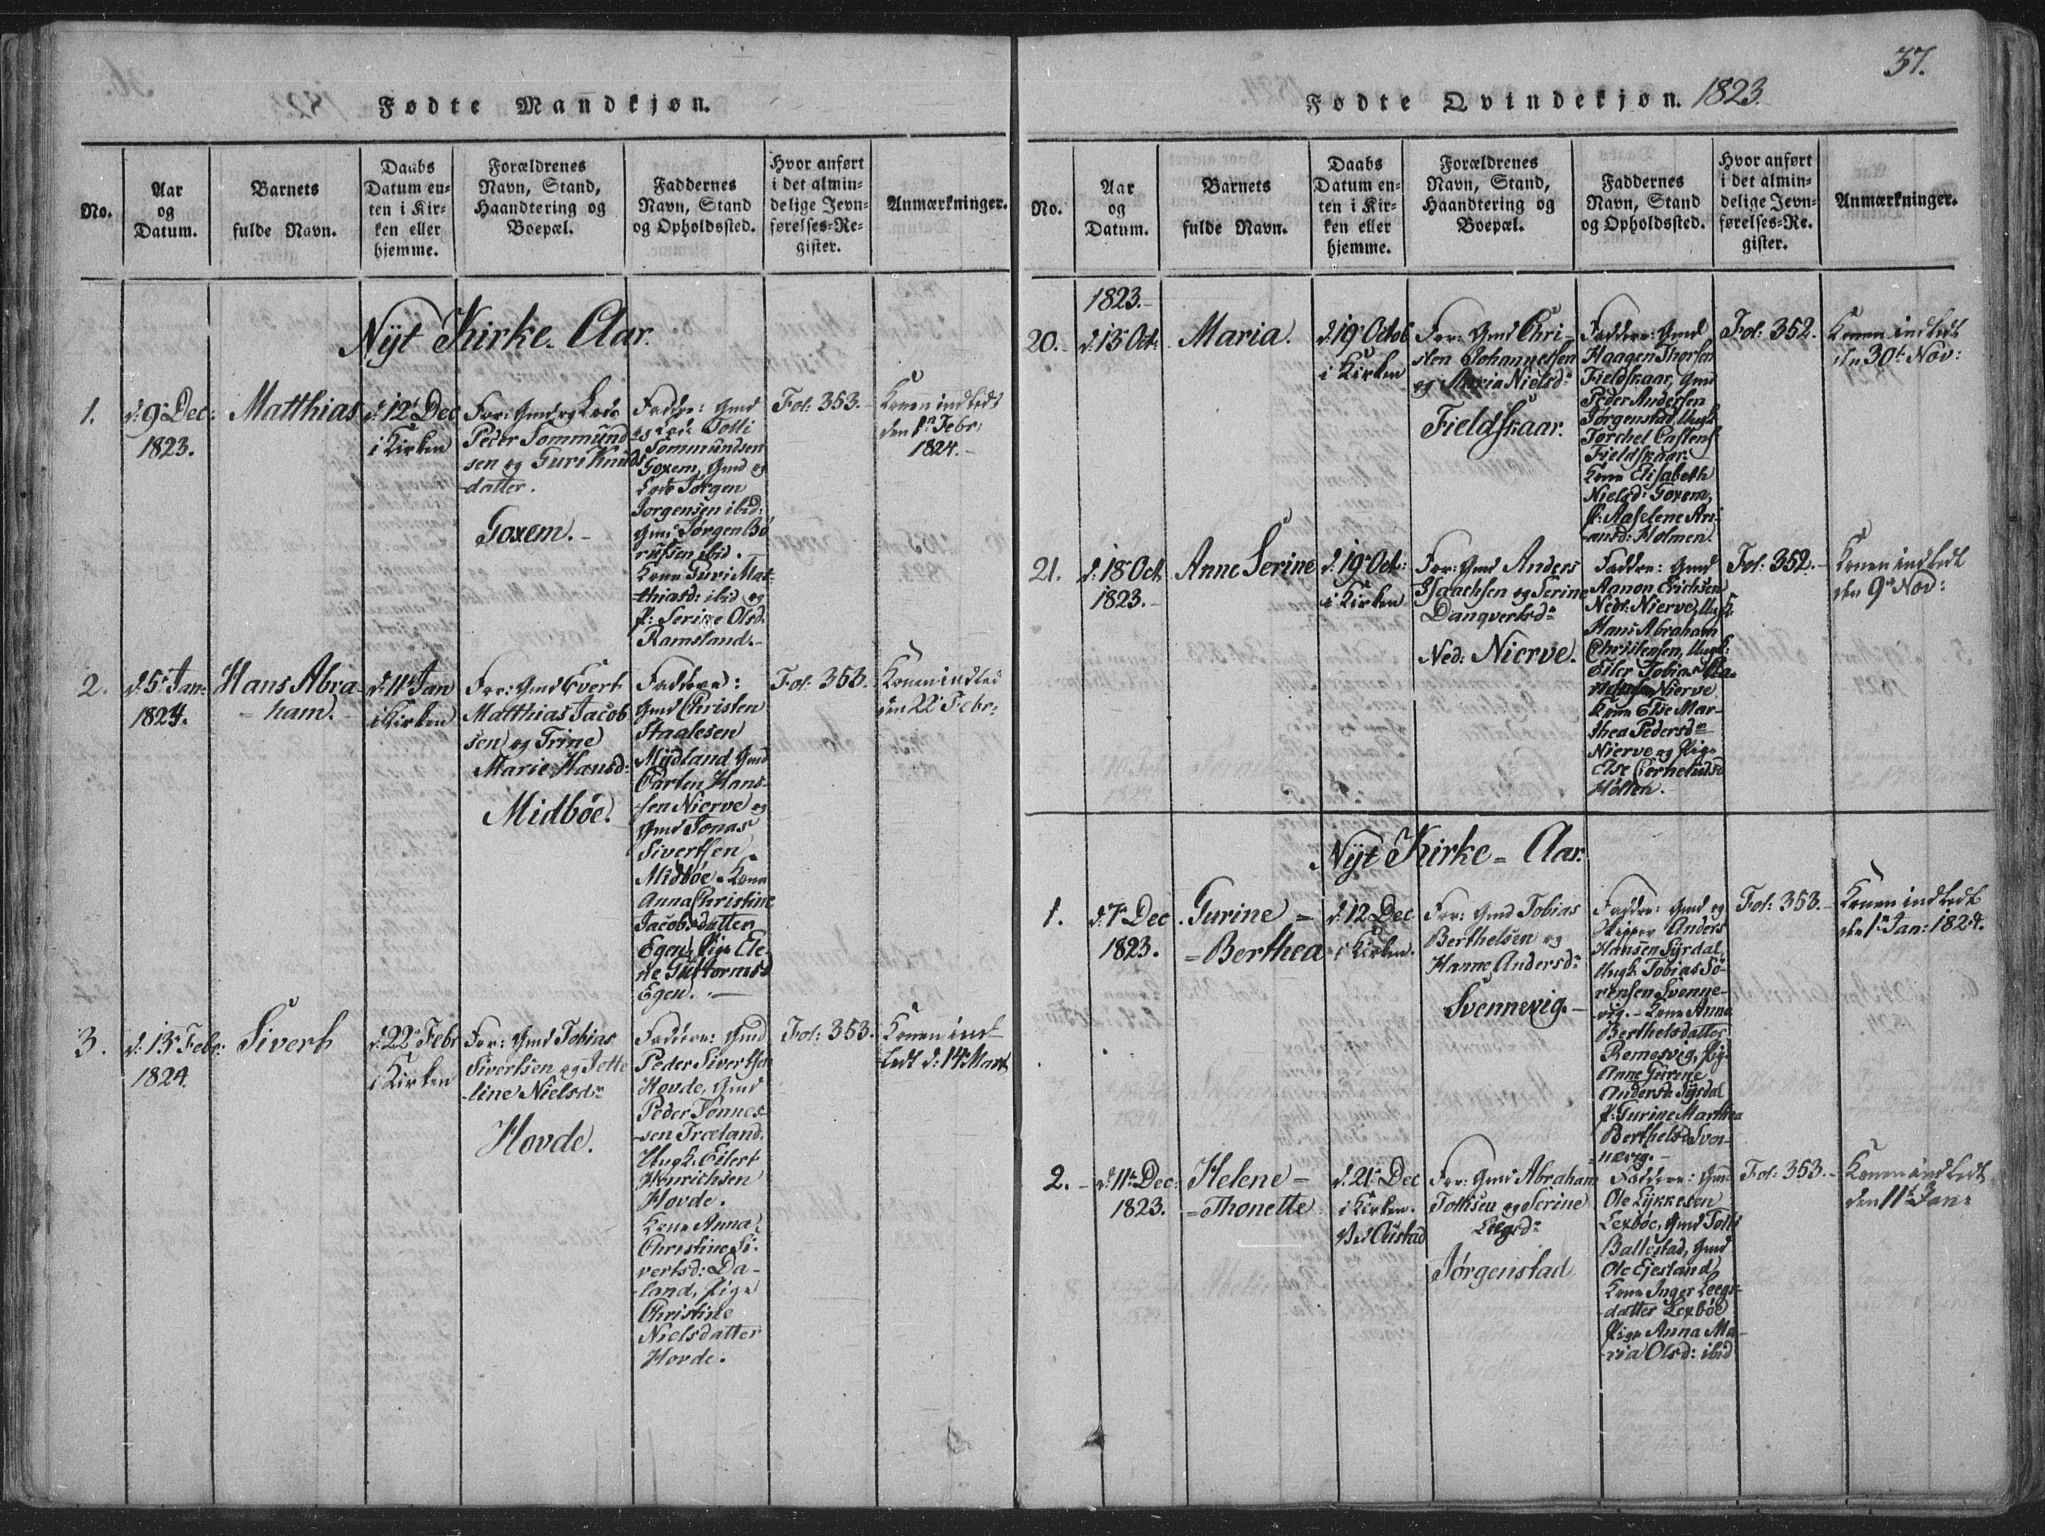 Fødte Mandkjøn.
No.
Aar
og
Datum.
Barnets
fulde Navn.
Daabs
Datum en-
ten i Kir-
ken eller
hjemme.
Forældrenes
Navn, Stand,
Haandtering og
Boepæl.
Faddernes
Navn, Stand
og Opholdssted.
Hvor anført
i det almin-
delige Jevn-
førelses-Re-
gister.
Anmærkninger.
Nÿt Kirke-Aar.
1.
d: 9de Dec:
1823.
Matthias
d: 12te Dec
i Kirken
For: Gmd og Lods
Peder Tommund
sen og Guri Knuds
datter.
Goxem.
Faddre: Gmd
og Lods Tolli
Tommundsen
Goxem, Gmd og
Lods Jørgen
Jorgensen ibid:
Gmd Jørgen Bø
rufsen ibid.
Kone Guri Mat-
thiasd: ibid og
P: Serine Olsd.
Ramsland.
Fol: 353.
Konen indledt
den 1te Febr:
1824.
2.
d: 5te Jan:
1824.
Hans Abra
ham.
d: 11te Jan
i Kirken
For: Gmd Evert
Matthias Jacob
sen og Trine
Marie Hansd:
Midbøe.
Faddere:
Gmd Christen
Staalesen
Mÿdland, Gmd
Carten Hans-
sen Nierve og
Gmd Jonas
Sivertsen
Midbøe. Kone
Anna Christine
Jacobsdatter
Egen, Pige Ele-
ne Guttormsd
Egen.
Fol: 353.
Konen indled
den 22de Febr:
3.
d: 13de Febr:
1824.
Sivert
d: 22de Febr
i Kirken
For: Gmd Tobias
Sivertsen og Jette
line Nielsdr
Hovde.
Faddere: Gmd
Peder Sivertsen
Hovde, Gmd
Peder Tønnes-
sen Træland.
Ungk. Eilert
Henrichsen
Hovde.
Kone Anna
Christine Si-
vertsd: Da-
land, Pige
Christine
Nielsdatter
Hovde.
Fol: 353.
Konen ind-
ledt d: 14de Mart
37.
Fødte Qvindekjøn. 1823.
No.
Aar
og
Datum.
Barnets
fulde Navn.
Daabs
Datum en-
ten i Kir-
ken eller
hjemme.
Forældrenes
Navn, Stand,
Haandtering og
Boepæl.
Faddernes
Navn, Stand
og Opholdssted.
Hvor anført
i det almin-
delige Jevn-
førelses-Re-
gister.
Anmærkninger.
1823.
20.
d: 13 Oct:
Maria.
d: 19de Octob
i Kirken
For: Gmd Chri-
sten Johannessen
og Maria Nielsdr
Fieldskaar.
Faddere: Gmd
Haagen Thorsen
Fieldskaar, Gmd
Peder Andersen
Jørgenstad, Ungk.
Torchel Castens
Fieldskaar.
Kone Elisabeth
Nielsd: Goxem,
P: Aaselene Ari-
ansd: Holmen.
Fol: 352.
Konen indledt
den 30te Nov:
21.
d: 18de Oct
1823.
Anne Serine
d: 19de Oct:
i Kirken
For: Gmd Anders
Isaachsen og Serine
Danqvertsdr
Ned: Nierve.
Faddre: Gmd
Aanon Erichsen
Nedr: Nierve, Ungk:
Hans Abraham
Christensen, Ungk:
Eiler Tobias
Nierve
Kone Else Mar-
thea Pedersdr
Nierve og Pige
Else Corneliusd
Holten.
Fol: 352.
Konen indledt
den 9de Nov:
Nÿt Kirke-Aar.
1.
d: 7de Dec
1823.
Gurine
Berthea
d: 12 Dec
i Kirken.
For: Gmd Tobias
Berthelsen og
Hanne Andersdr
Svennevig.
Faddre: Gmd og
Skipper Anders
Hansen Sÿrdal,
Ungk: Tobias Sø-
rensen Svenne-
vig. Kone Anna
Berthelsdatter
Remesvig, Pige
Anne Gurine
Andersd: Sÿrdal
P: Gurine Marthea
Berthelsd Sven-
nevig.
Fol: 353.
Konen indledt
den 1te Jan: 1824.
2.
d: 11te Dec:
1823.
Helene
Thonette
d. 21de Dec
i Kirken.
For: Gmd Abraham
Tollisen og Serine
Leegsdr
Jørgenstad
Faddere: Gmd
Ole Lÿkkesen
Lexbøe, Gmd Tolli
Ballestad, Gmd
Ole Ejesland
Kone Inger Leegs-
datter Lexbøe
Pige Anna Ma-
ria Olsd: ibid
Fol: 353.
Konen indledt
den 11te Jan: